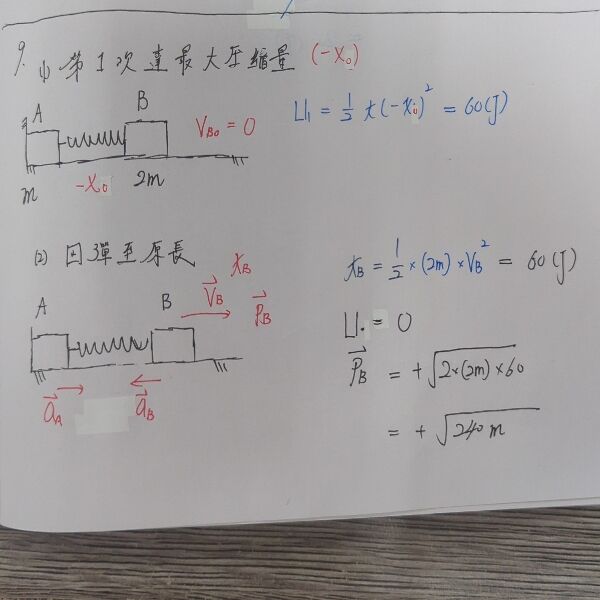 9. (1) 第1次達最大压縮量 (-X₀)
A
B
V_B₀ = 0
U₁ = 1/2 k(-X₀)² = 60(J)
m
-X₀
2m
(2) 回彈至原長
A
B
K_B
V⃗_B
P⃗_B
a⃗_A
a⃗_B
K_B = 1/2 × (2m) × V_B² = 60(J)
U₀ = 0
P⃗_B = +√2×(2m)×60
= +√240m